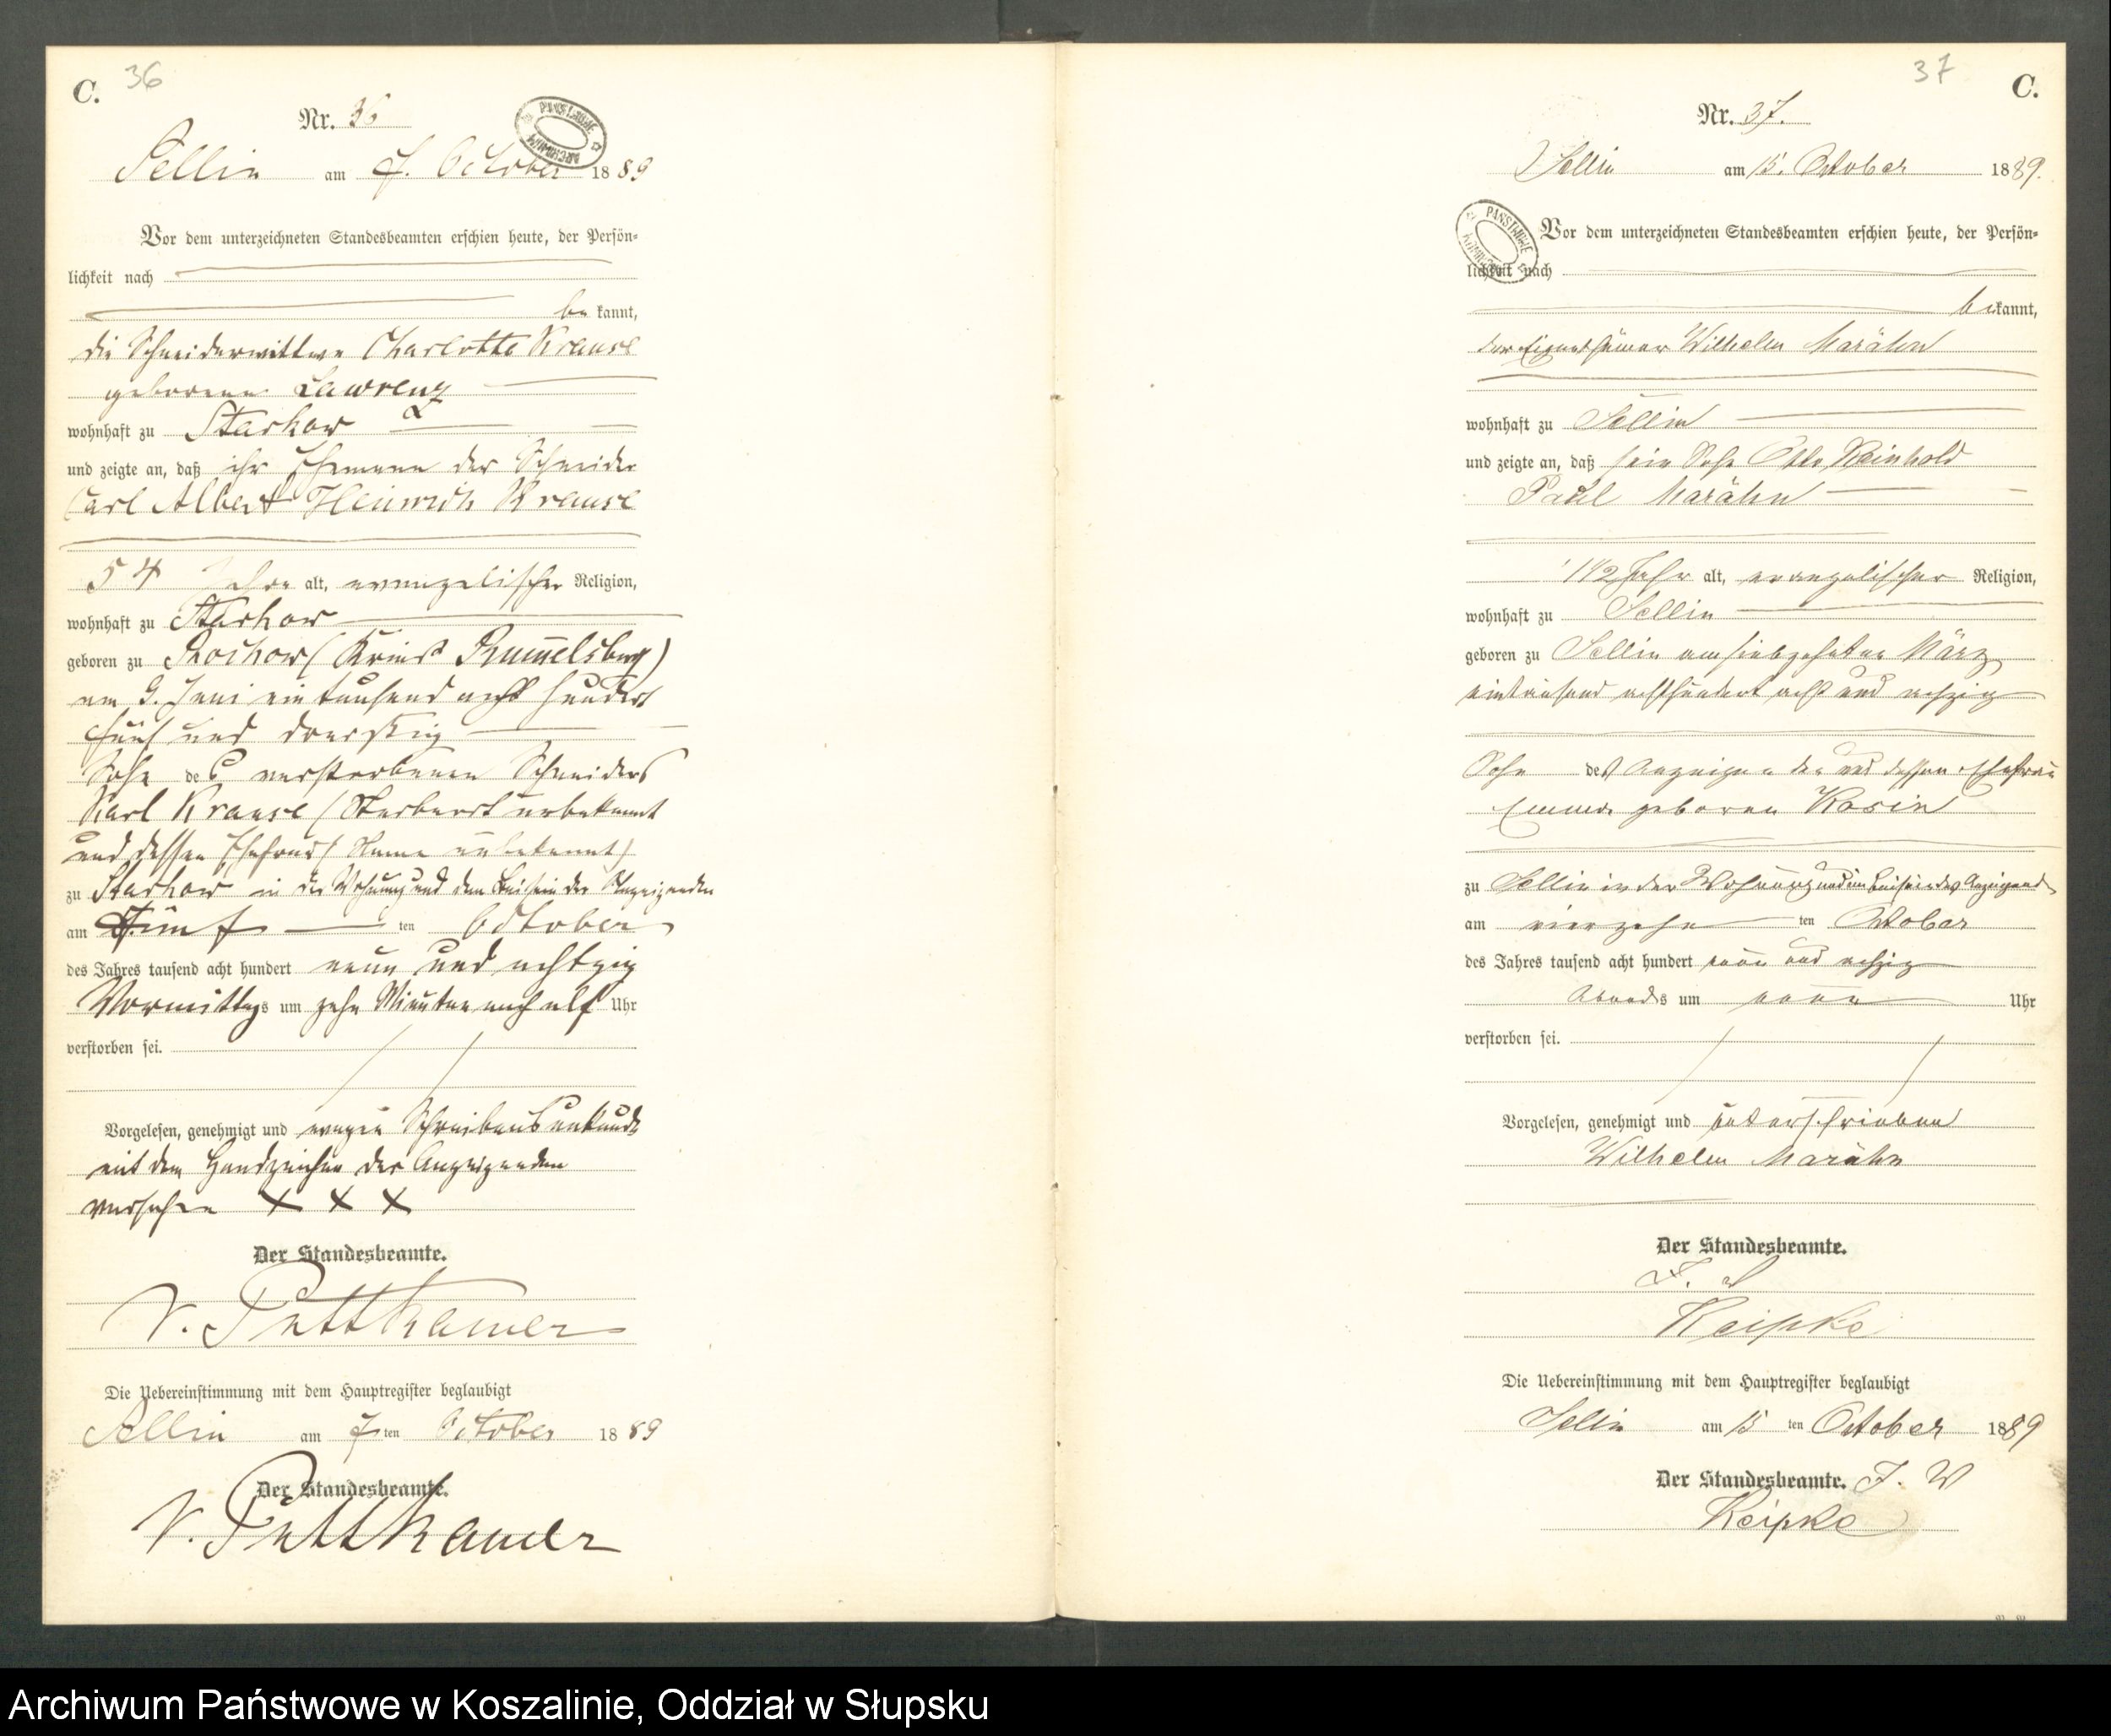 C. 36
Nr. 36
Sellin am 7. October 1889
Vor dem unterzeichneten Standesbeamten erschien heute, der Persön-
lichkeit nach
be kannt,
die Schneiderwittwe Charlotte Krause
geborene Lawrenz
wohnhaft zu Starkow
und zeigte an, daß ihr Ehemann der Schneider
Carl Albert Heinrich Krause
54 Jahre alt, evangelischer Religion,
wohnhaft zu Starkow
geboren zu Rochow (Kreis Rummelsburg)
am 9. Juni ein tausend acht hundert
fünf und dreißig
Sohn des verstorbenen Schneiders
Karl Krause (Sterbeort unbekannt
und dessen Ehefrau (Name unbekannt)
zu Starkow in der Wohnung und dem Beisein der Anzeigenden
am fünf ten October
des Jahres tausend acht hundert neun und achtzig
Vormittags um zehn Minuten nach elf Uhr
verstorben sei.
Vorgelesen, genehmigt und wegen Schreibensunkunde
mit dem Handzeichen der Anzeigenden
versehen X X X
Der Standesbeamte.
v. Puttkamer
Die Uebereinstimmung mit dem Hauptregister beglaubigt
Sellin am 7 ten October 1889
Der Standesbeamte.
v. Puttkamer
37 C.
Nr. 37.
Sellin am 15. October 1889.
Vor dem unterzeichneten Standesbeamten erschien heute, der Persön-
lichkeit nach
bekannt,
der Eigenthümer Wilhelm Marähn
wohnhaft zu Sellin
und zeigte an, daß sein Sohn Otto Reinhold
Paul Marähn
1 1/2 Jahr alt, evangelischer Religion,
wohnhaft zu Sellin
geboren zu Sellin am siebzehnten März
eintausend achthundert acht und achzig
Sohn des Anzeigenden und dessen Ehefrau
Emma geboren Kosin
zu Sellin in der Wohnung und im Beisein des Anzeigend
am vierzehn ten October
des Jahres tausend acht hundert neun und achzig
Abends um neun Uhr
verstorben sei.
Vorgelesen, genehmigt und unterschrieben
Wilhelm Marähn
Der Standesbeamte.
Keipke
Die Uebereinstimmung mit dem Hauptregister beglaubigt
Selin am 15 ten October 1889
Der Standesbeamte. J. V
Keipke
Archiwum Państwowe w Koszalinie, Oddział w Słupsku